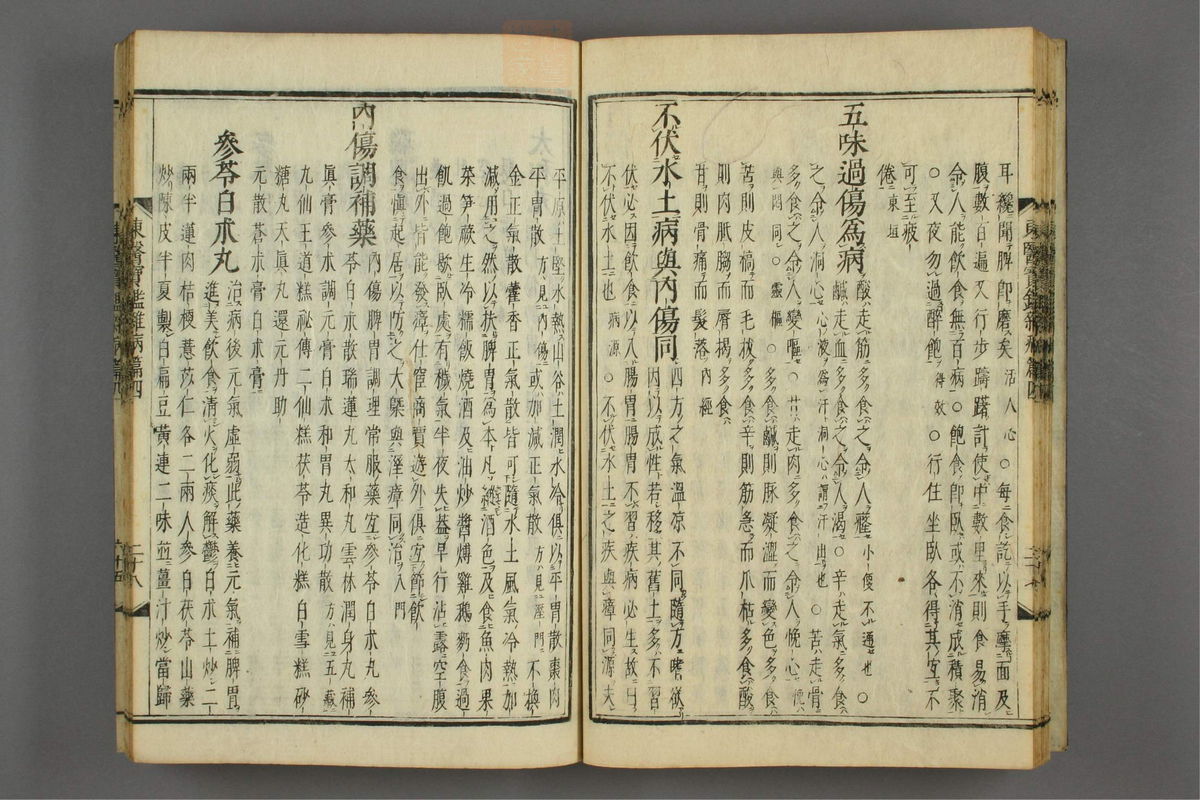 耳纔聞脾即磨矣活人心○每食訖以手摩面及
腹數百遍又行步躊躇計使中數里來則食易消
令人能飲食無百病○飽食即臥或不消成積聚
○又夜勿過醉飽得效○行住坐臥各得其宜不
可至疲
倦東垣
五味過傷為病酸走筋多食之令人癃小便不通也○
鹹走血多食之令人渴○辛走氣多食
之令人洞心心液為汗洞心謂汗出也○苦走骨
多食之令人變嘔○甘走肉多食之令人悗心悗
與悶同○靈樞○多食鹹則脉凝澀而變色多食
苦則皮槁而毛拔多食辛則筋急而爪枯多食酸
則肉胝䐢而脣揭多食
甘則骨痛而髮落內經
不伏水土病與內傷同四方之氣溫凉不同隨方嗜欲
因以成性若移其舊土多不習
伏必因飲食以入腸胃腸胃不習疾病必生故曰
不伏水土也病源○不伏水土之疾與瘴同源夫
平原土堅水熱山谷土潤水冷俱以平胃散棗肉
平胃散方見內傷或加減正氣散方見溼門不換
金正氣散藿香正氣散皆可隨水土風氣冷熱加
減用之然以扶脾胃為本凡縱酒色及食魚肉果
菜笋蕨生冷糯飯燒酒及油炒醬煿雞鵝麪食過
飢過飽歇臥處有穢氣半夜失蓋早行沾露空腹
出外皆能發瘴仕宦商賈遊外俱宜節飲
食愼起居以防之大槩與溼瘴同治入門
內傷調補藥內傷脾胃調理常服藥宜參苓白朮丸參
苓白朮散瑞蓮丸太和丸雲林潤身丸補
眞膏參朮調元膏白朮和胃丸異功散方見五藏
九仙王道糕祕傳二仙糕茯苓造化糕白雪糕砂
糖丸天眞丸還元丹助
元散蒼朮膏白朮膏
參苓白朮丸治病後元氣虛弱此藥養元氣補脾胃
進美飲食清火化痰解鬱白朮土炒二
兩半蓮肉桔梗薏苡仁各二兩人參白茯苓山藥
炒陳皮半夏製白扁豆黃連二味並薑汁炒當歸
東醫寶鑑雜病篇四
二十八